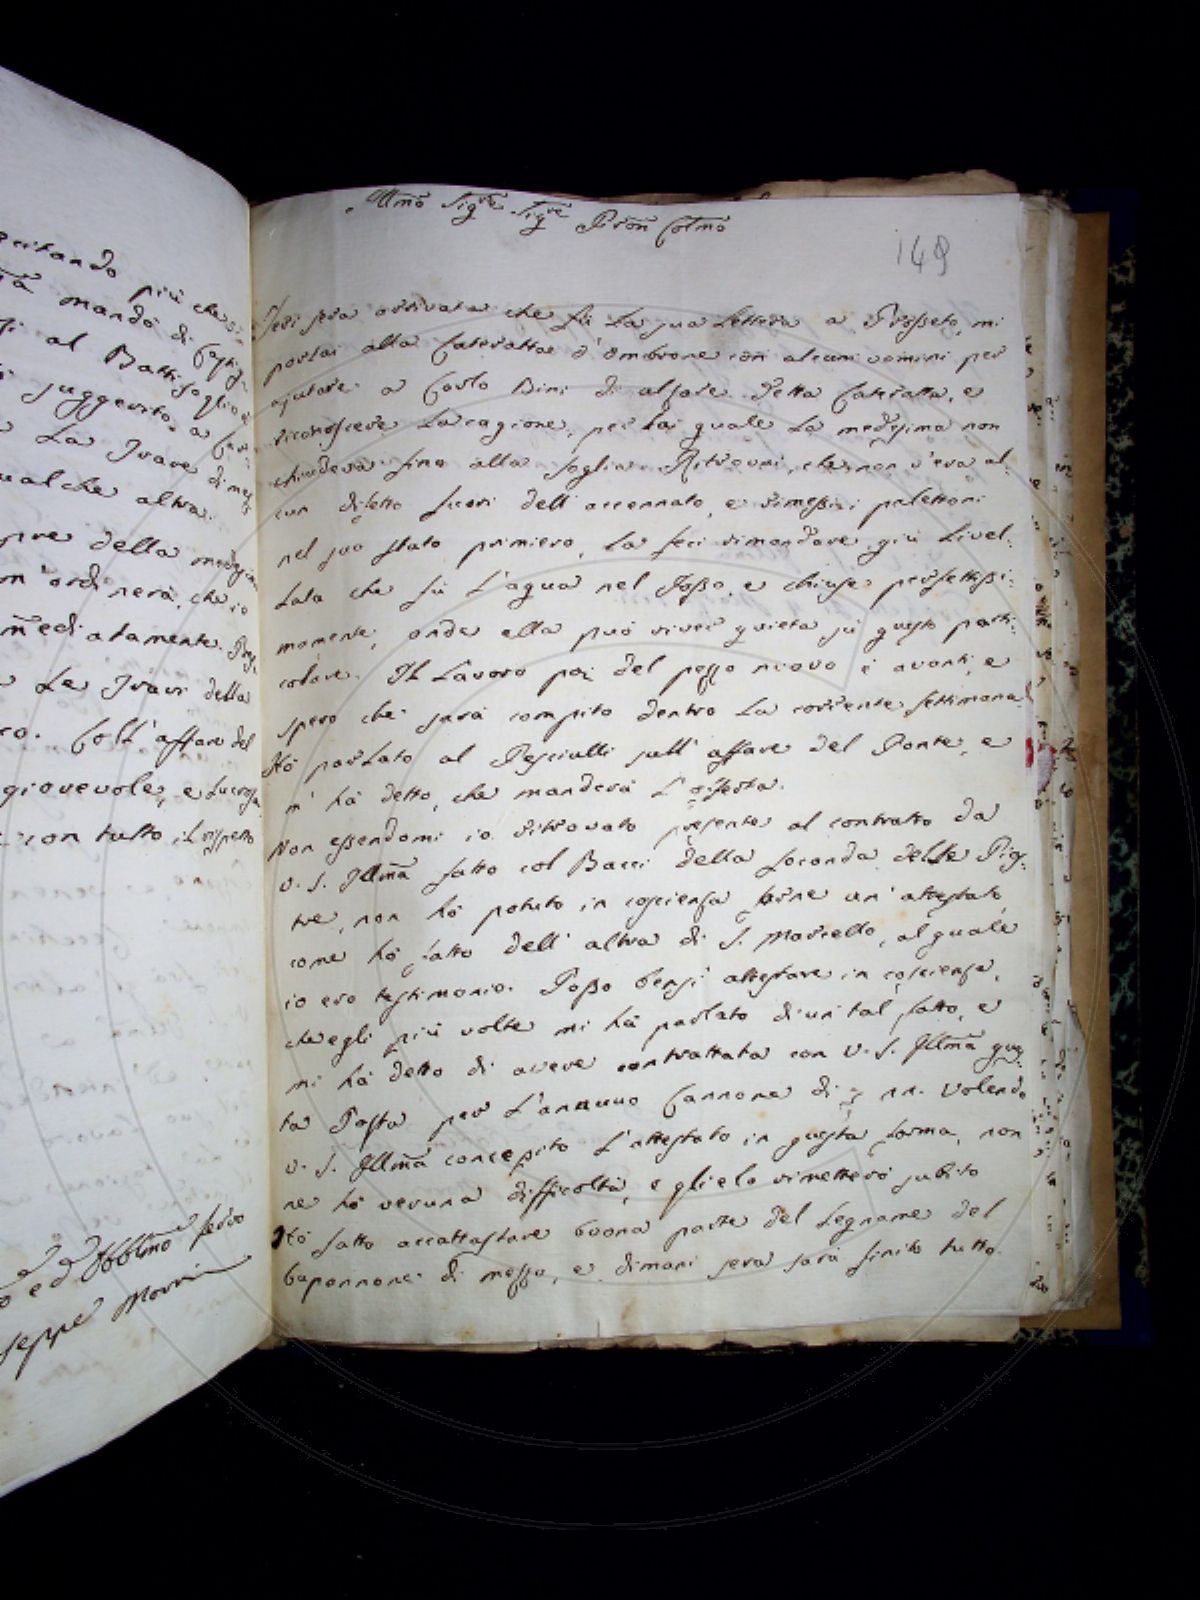 più che
mandò di
al Battifoglio
suggerito, a
La Trave di mez
qualche altra.
pre della medesim
m'ordinerà, che io
mediatamente.
Le Travi della
co. Coll' affare del
giovevole, e Lucroso
con tutto il rispetto
ed Obblmo servo
seppe
Illmo Sigre Sigre Pron Colmo
149
Jeri sera arrivata che fù La sua Lettera a Grosseto, mi
portai alla Cateratta d'Ombrone con alcuni uomini per
ajutare a Carlo Bini di alsare detta Cateratta, e
riconoscere La cagione, per La quale La medesima non
chiudeva fino alla soglia. Ritrovai, che non v'era al:
cun difetto fuori dell' accennato, e rimessi i palettoni
nel suo stato primiero, La feci rimandare giù Livel:
Lata che fù L'aqua nel Fosso, e chiuse perfettissi:
mamente, onde ella può viver quieta sù questo parti:
colare. Il Lavoro poi del pezzo nuovo è avanti, e
spero che sarà compito dentro La corrente settimana.
Hò parlato al Pesciulli sull' affare del Ponte, e
m' hà detto, che manderà L'offerta.
Non essendomi io ritrovato presente al contratto da
V. S. Illma fatto col Bacci della seconda delle Pies:
tre, non hò potuto in coscienza farne un' attestato,
come hò fatto dell' altra di S. Marcello, al quale
io ero testimonio. Posso bensì attestare in coscienza,
che egli più volte mi hà parlato di un tal fatto, e
mi hà detto di avere contrattata con V. S. Illma que
ta Posta per L'annuo Cannone di nn. Volendo
V. S. Illma concepito L'attestato in questa forma, non
ne hò veruna difficoltà, e glielo rimetterò subito
Hò fatto accattastare buona parte del Legname del
Caponnone di mezzo, e dimani sera sarà finito tutto.